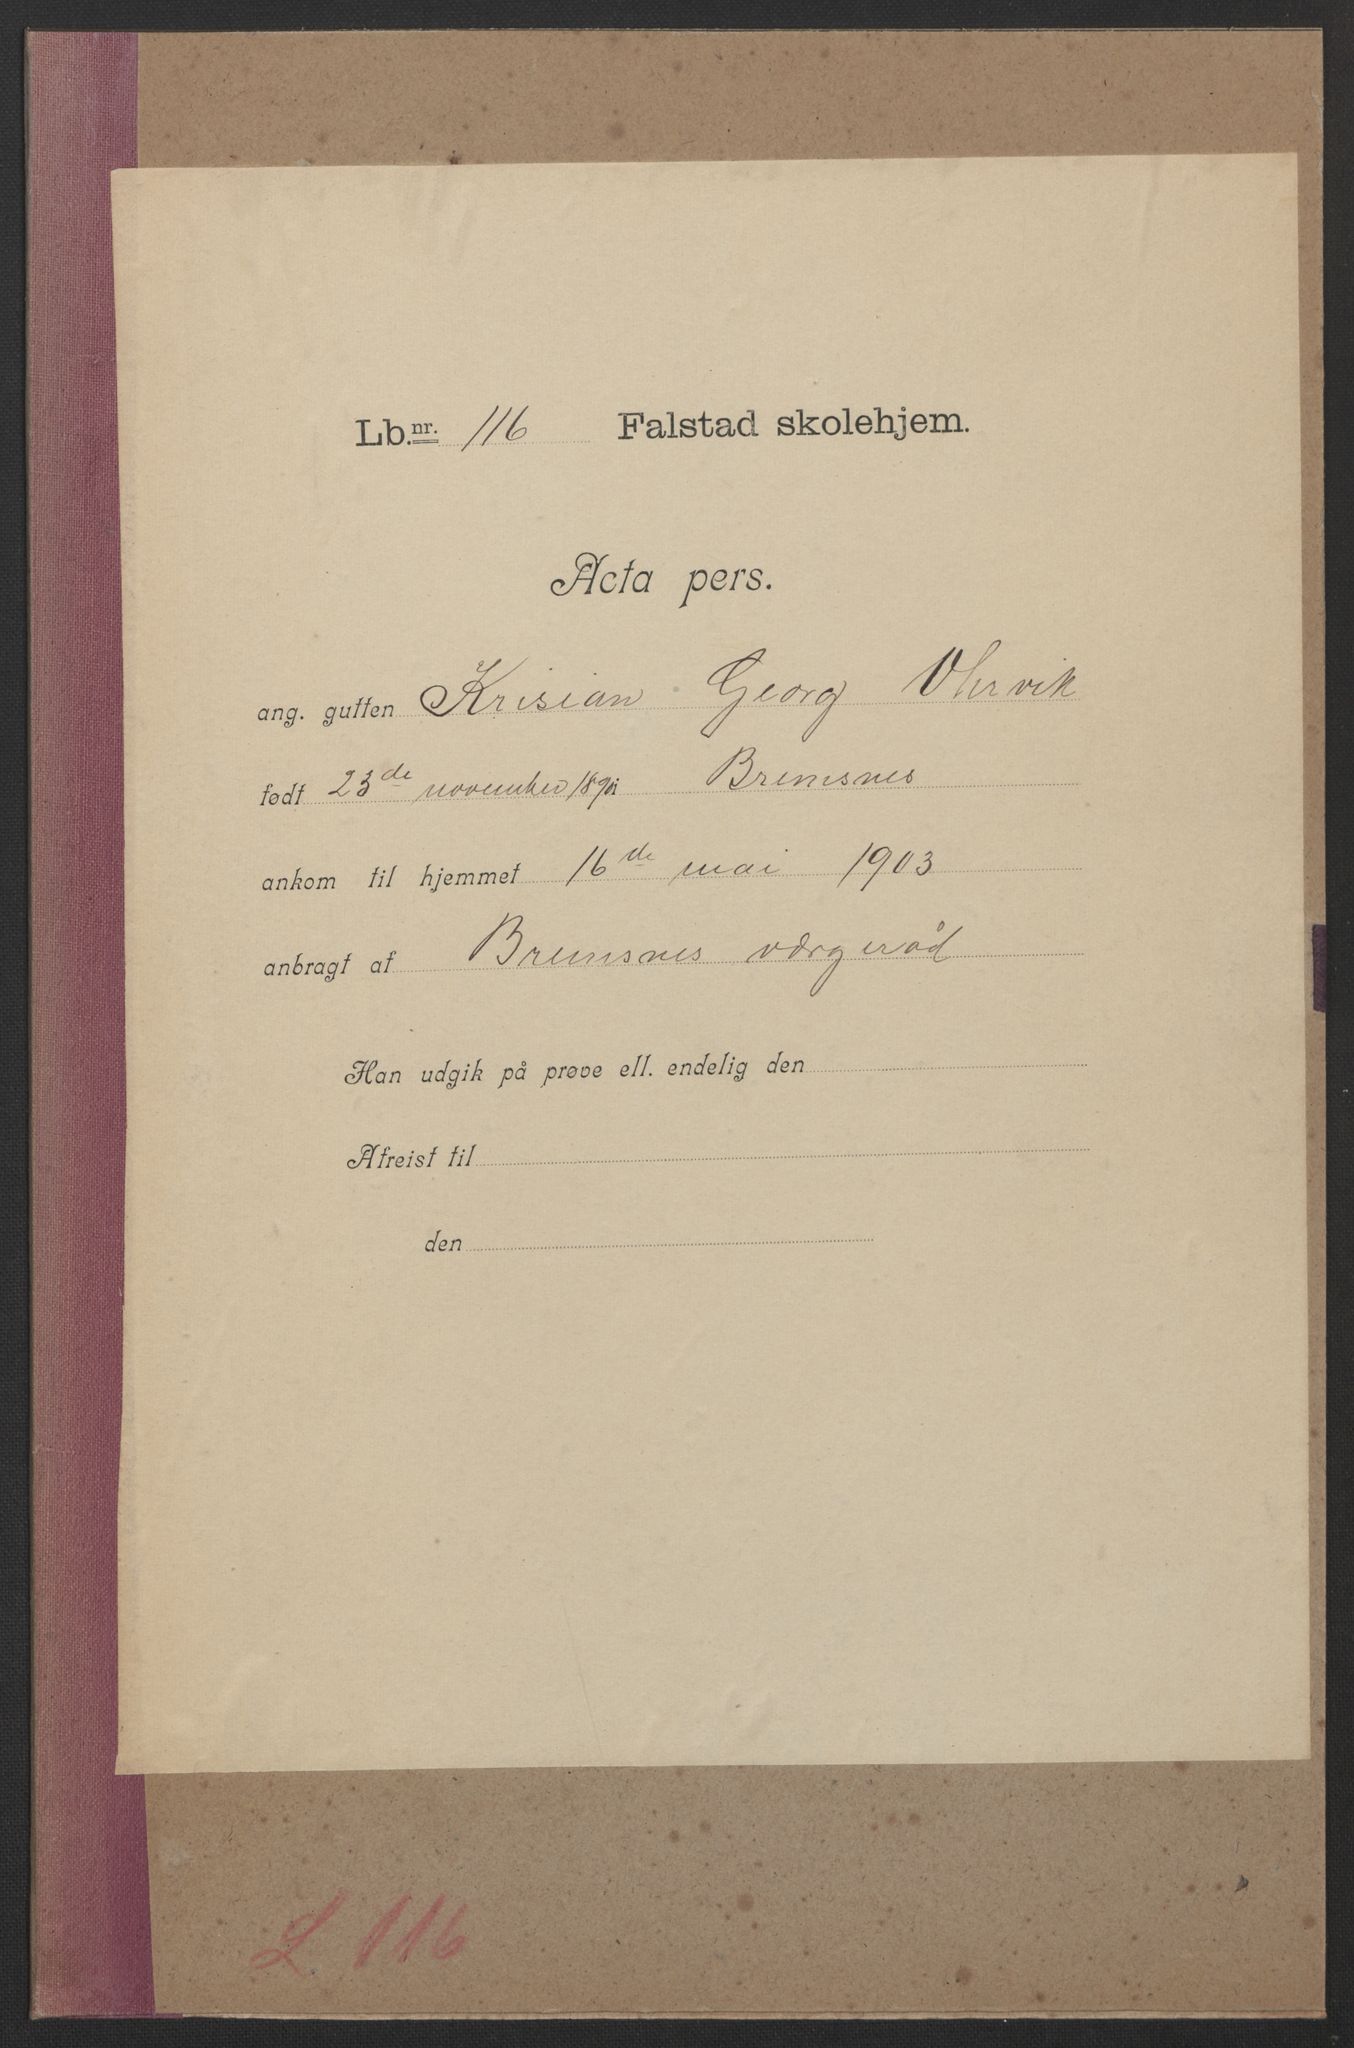 Lb.nr. 116 Falstad skolehjem.
Acta pers.
ang. gutten Krisian Georg Ohrvik
født 23de november 1890 i Bremsnes
ankom til hjemmet 16de mai 1903
anbragt af Bremsnes værgeråd
Han udgik på prøve ell. endelig den
Afreist til
den
L 116